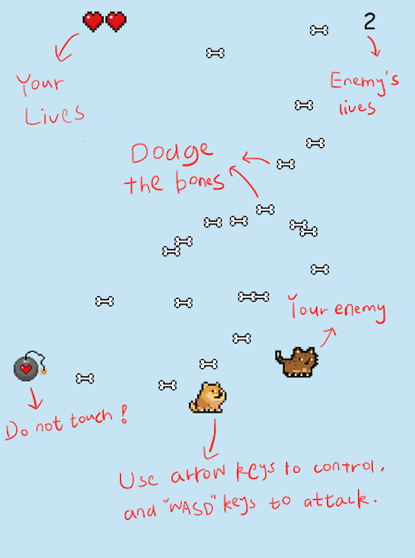 2
Your
Lives
Enemy's
lives
Dodge
the bones
Your enemy
Do not touch!
Use arrow keys to control,
and "WASD" keys to attack.